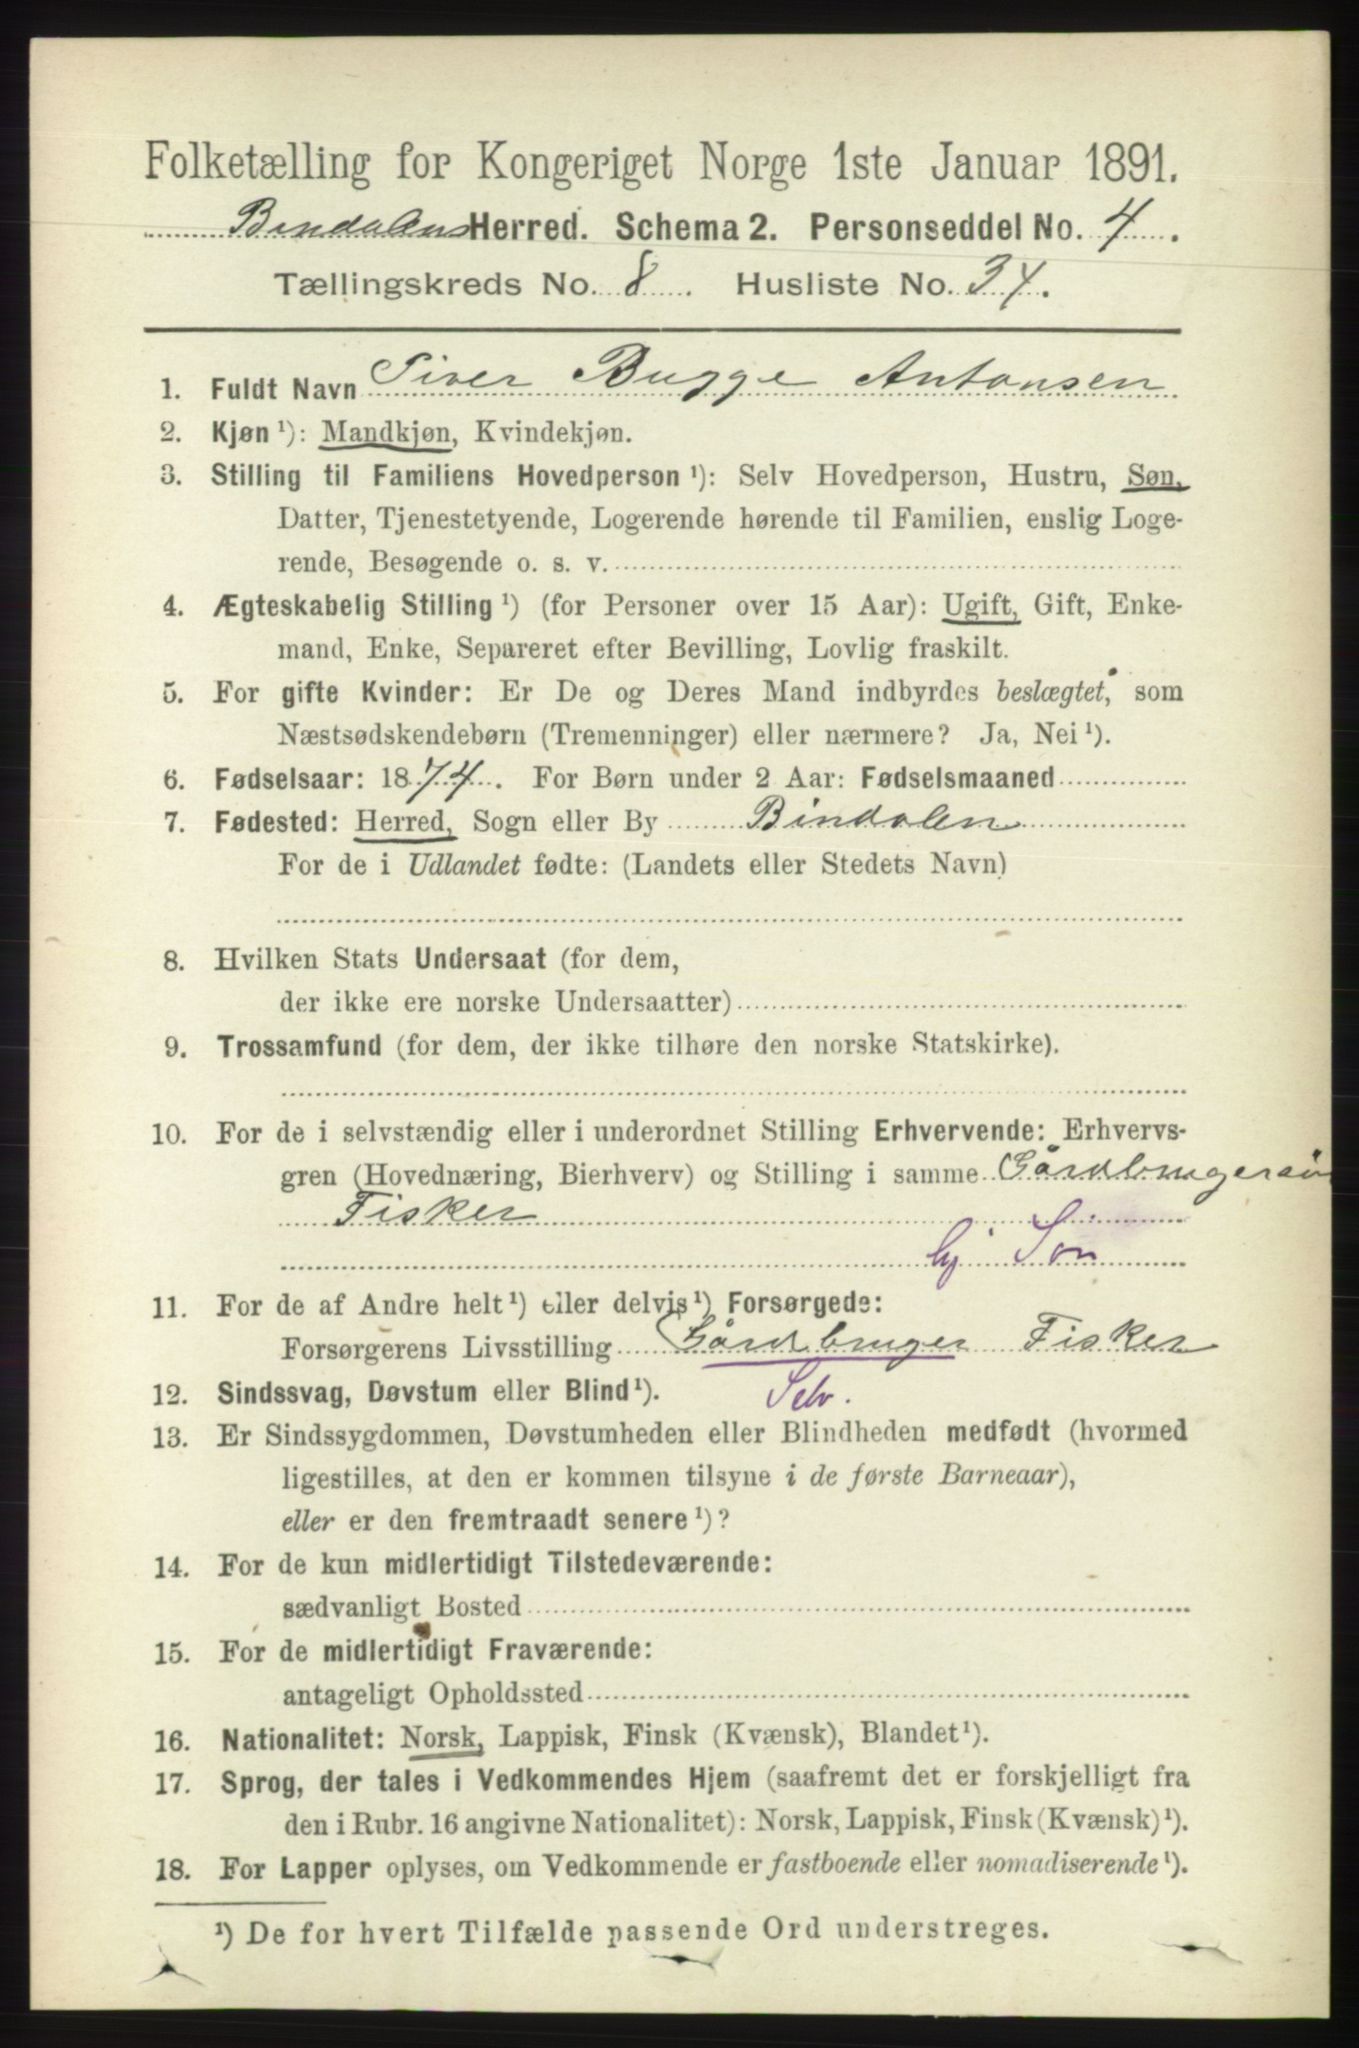 Folketælling for Kongeriget Norge 1ste Januar 1891.
Bindalens Herred. Schema 2. Personseddel No. 4.
Tællingskreds No. 8. Husliste No. 34.
1. Fuldt Navn Siver Bugge Antonsen
2. Kjøn ¹): Mandkjøn, Kvindekjøn.
3. Stilling til Familiens Hovedperson ¹): Selv Hovedperson, Hustru, Søn,
Datter, Tjenestetyende, Logerende hørende til Familien, enslig Loge-
rende, Besøgende o. s. v.
4. Ægteskabelig Stilling ¹) (for Personer over 15 Aar): Ugift, Gift, Enke-
mand, Enke, Separeret efter Bevilling, Lovlig fraskilt.
5. For gifte Kvinder: Er De og Deres Mand indbyrdes beslægtet, som
Næstsødskendebørn (Tremenninger) eller nærmere? Ja, Nei ¹).
6. Fødselsaar: 1874. For Børn under 2 Aar: Fødselsmaaned
7. Fødested: Herred, Sogn eller By Bindalen
For de i Udlandet fødte: (Landets eller Stedets Navn)
8. Hvilken Stats Undersaat (for dem,
der ikke ere norske Undersaatter)
9. Trossamfund (for dem, der ikke tilhøre den norske Statskirke).
10. For de i selvstændig eller i underordnet Stilling Erhvervende: Erhvervs-
gren (Hovednæring, Bierhverv) og Stilling i samme Gårdbrugersøn
Fisker
hj Søn
11. For de af Andre helt ¹) eller delvis ¹) Forsørgede:
Forsørgerens Livsstilling Gårdbruger Fisker
12. Sindssvag, Døvstum eller Blind ¹). Selv.
13. Er Sindssygdommen, Døvstumheden eller Blindheden medfødt (hvormed
ligestilles, at den er kommen tilsyne i de første Barneaar),
eller er den fremtraadt senere ¹)?
14. For de kun midlertidigt Tilstedeværende:
sædvanligt Bosted
15. For de midlertidigt Fraværende:
antageligt Opholdssted
16. Nationalitet: Norsk, Lappisk, Finsk (Kvænsk), Blandet ¹).
17. Sprog, der tales i Vedkommendes Hjem (saafremt det er forskjelligt fra
den i Rubr. 16 angivne Nationalitet): Norsk, Lappisk, Finsk (Kvænsk) ¹).
18. For Lapper oplyses, om Vedkommende er fastboende eller nomadiserende ¹).
¹) De for hvert Tilfælde passende Ord understreges.